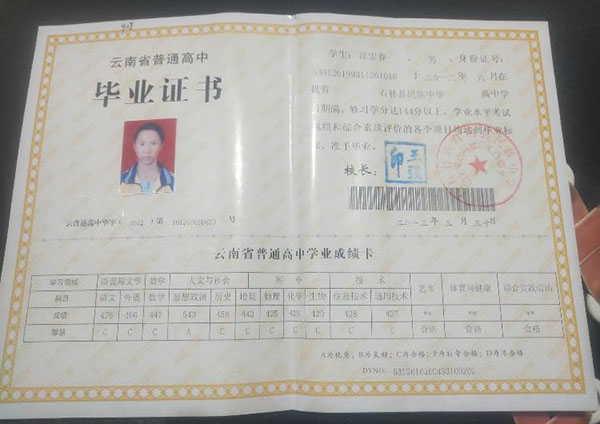 云南省普通高中
毕业证书
云普通高中毕字( )第 号
学生: , 男, 身份证号:
于二〇一二年 六月在
我省 石林县民族中学 高中学
习期满, 修习学分达144分以上, 学业水平考试
成绩和综合素质评价的各个项目均达到毕业标
准, 准予毕业。
校长:
二〇一三年 三 月 三十日
云南省普通高中学业成绩卡
学习领域 语言与文学 数学 人文与社会 科 学 技 术 艺术 体育与健康 综合实践活动
科目 语文 外语 数学 思想政治 历史 地理 物理 化学 生物 信息技术 通用技术
成绩 447 543 458 442 420 428 437 ** ** **
等第 C C C A C C C C C C C 合格 合格 合格
A为优秀; B为良好; C为合格; P为补考合格; D为不合格
DYNO.